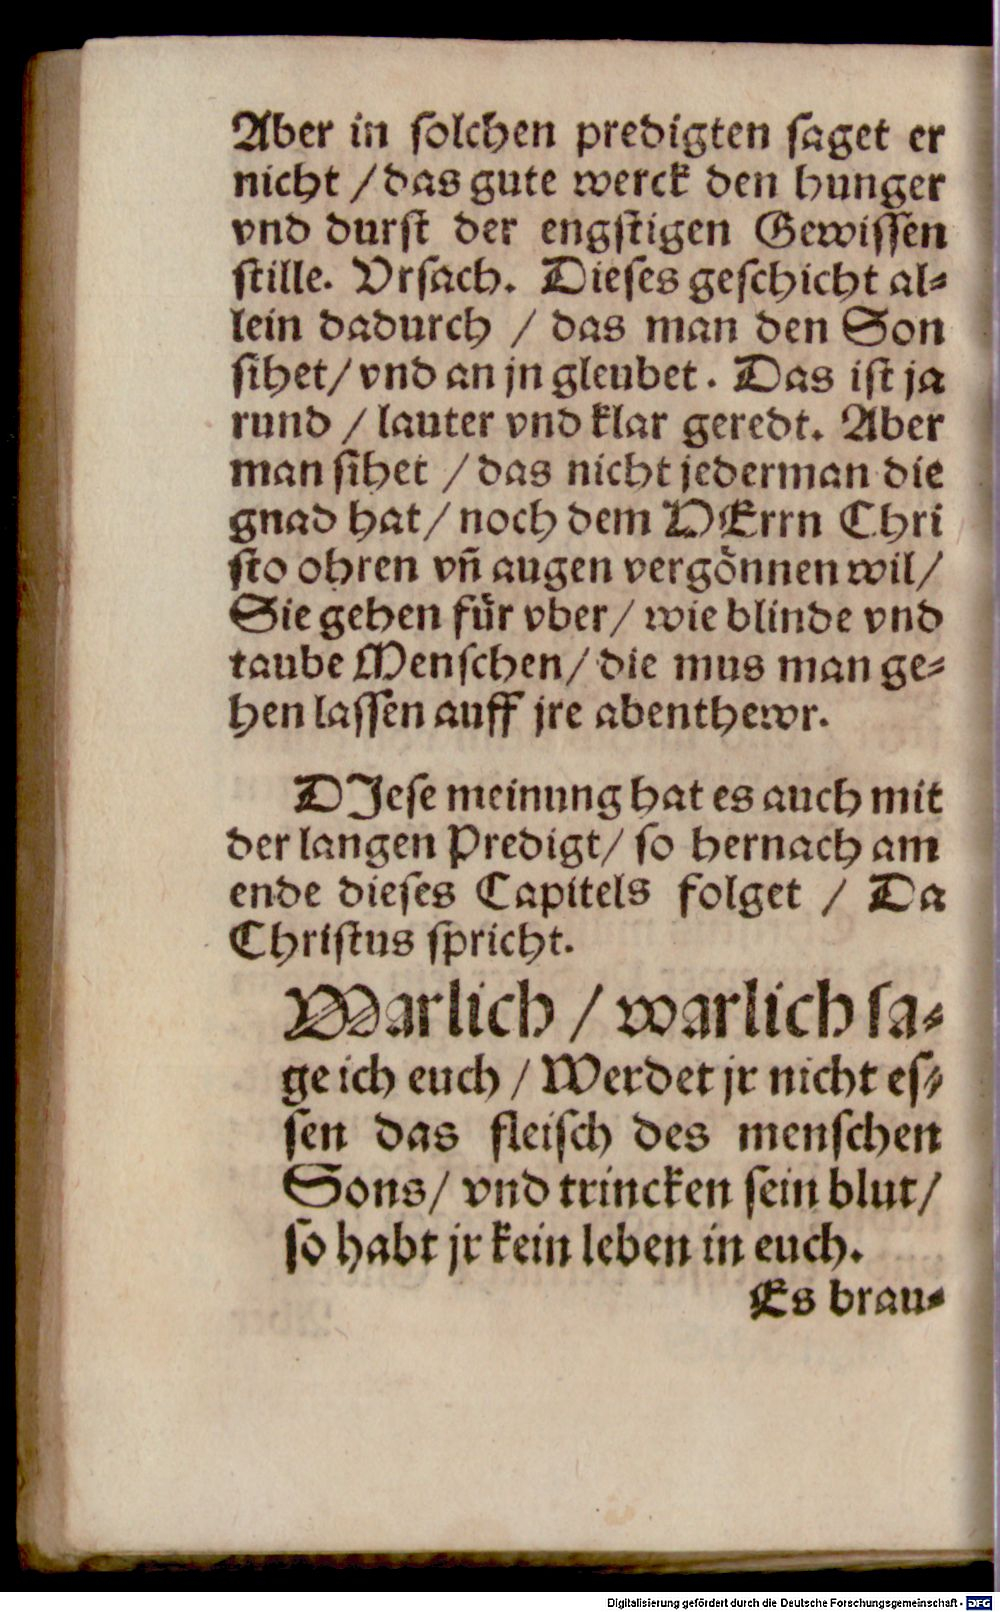 Aber in solchen predigten saget er
nicht / das gute werck den hunger
vnd durst der engstigen Gewissen
stille. Vrsach. Dieses geschicht al-
lein dadurch / das man den Son
sihet/ vnd an jn gleubet. Das ist ja
rund / lauter vnd klar geredt. Aber
man sihet / das nicht jederman die
gnad hat/ noch dem HErrn Chri
sto ohren vñ augen vergönnen wil/
Sie gehen für vber/ wie blinde vnd
taube Menschen/ die mus man ge-
hen lassen auff jre abenthewr.
DJese meinung hat es auch mit
der langen Predigt/ so hernach am
ende dieses Capitels folget / Da
Christus spricht.
Warlich / warlich sa-
ge ich euch / Werdet jr nicht es-
sen das fleisch des menschen
Sons/ vnd trincken sein blut/
so habt jr kein leben in euch.
Es brau-
Digitalisierung gefördert durch die Deutsche Forschungsgemeinschaft - DFG